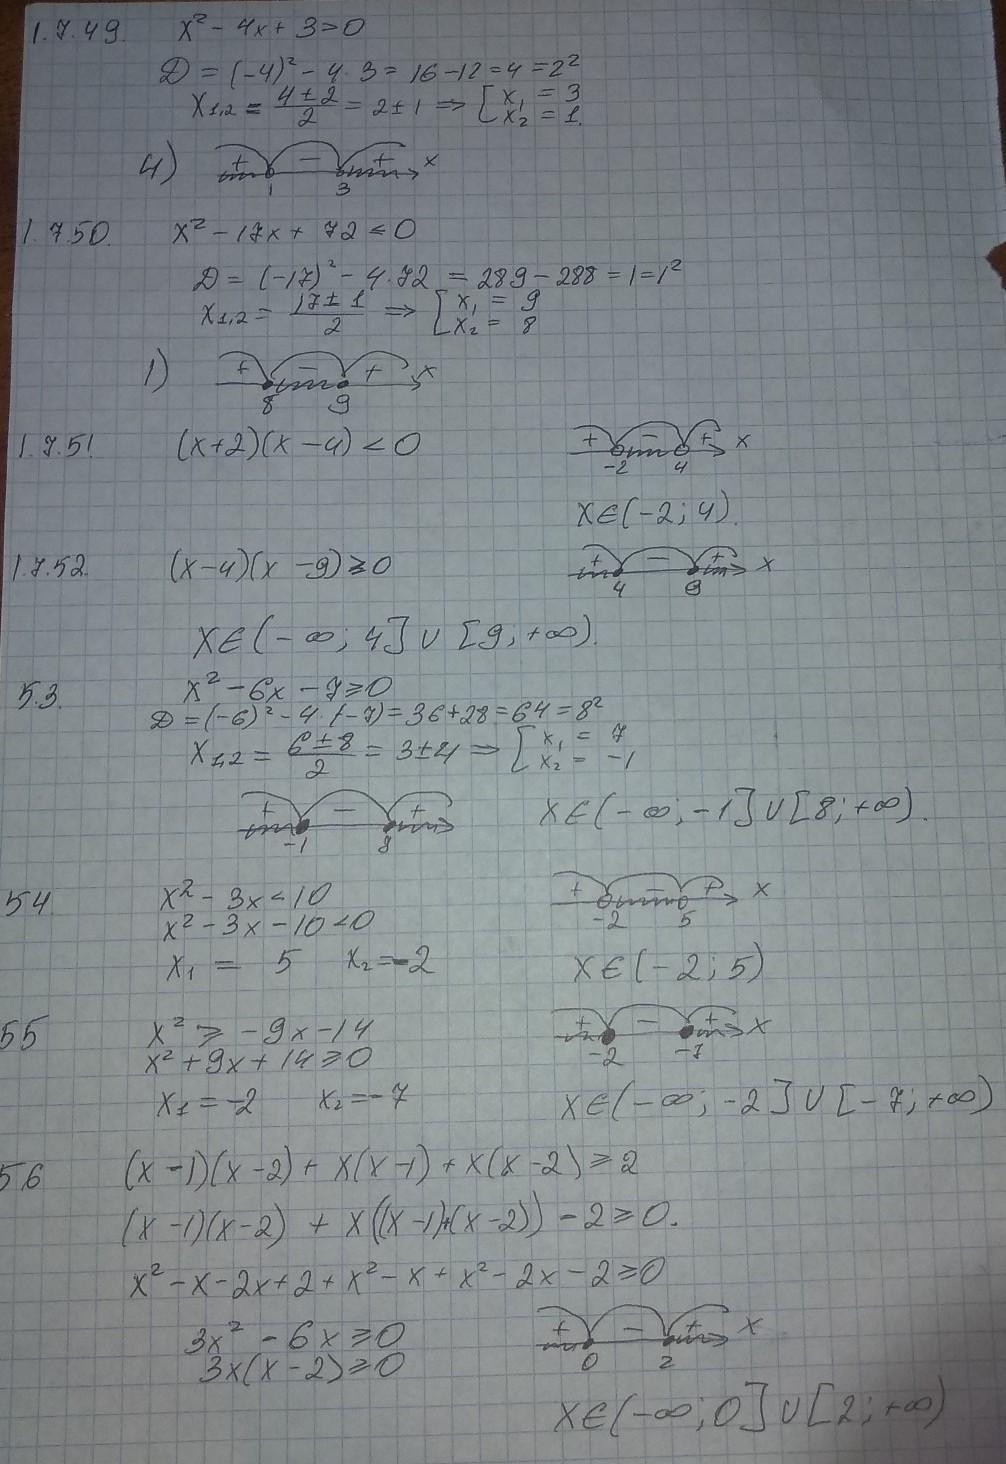 1.7.49. x² - 4x + 3 > 0
D = (-4)² - 4·3 = 16 - 12 = 4 = 2²
x₁,₂ = (4 ± 2)/2 = 2 ± 1 ⇒ [x₁ = 3
x₂ = 1.
4) + - + x
1 3
1.7.50. x² - 17x + 72 ≤ 0
D = (-17)² - 4·72 = 289 - 288 = 1 = 1²
x₁,₂ = (17 ± 1)/2 ⇒ [x₁ = 9
x₂ = 8
1) + - + x
8 9
1.7.51. (x+2)(x-4) < 0 + - + x
-2 4
x∈(-2; 4).
1.7.52. (x-4)(x-9) ≥ 0 + - + x
4 9
x∈(-∞; 4] ∪ [9; +∞).
53. x² - 6x - 7 ≥ 0
D = (-6)² - 4·(-7) = 36 + 28 = 64 = 8²
x₁,₂ = (6 ± 8)/2 = 3 ± 4 ⇒ [x₁ = 7
x₂ = -1
+ - + x∈(-∞; -1] ∪ [8; +∞).
-1 8
54. x² - 3x < 10 + - + x
x² - 3x - 10 < 0 -2 5
x₁ = 5 x₂ = -2 x∈(-2; 5)
55 x² ≥ -9x - 14 + - + x
x² + 9x + 14 ≥ 0 -2 -7
x₁ = -2 x₂ = -7 x∈(-∞; -2] ∪ [-7; +∞)
56 (x-1)(x-2) + x(x-1) + x(x-2) ≥ 2
(x-1)(x-2) + x((x-1)+(x-2)) - 2 ≥ 0.
x² - x - 2x + 2 + x² - x + x² - 2x - 2 ≥ 0
3x² - 6x ≥ 0 + - + x
3x(x-2) ≥ 0 0 2
x∈(-∞; 0] ∪ [2; +∞)